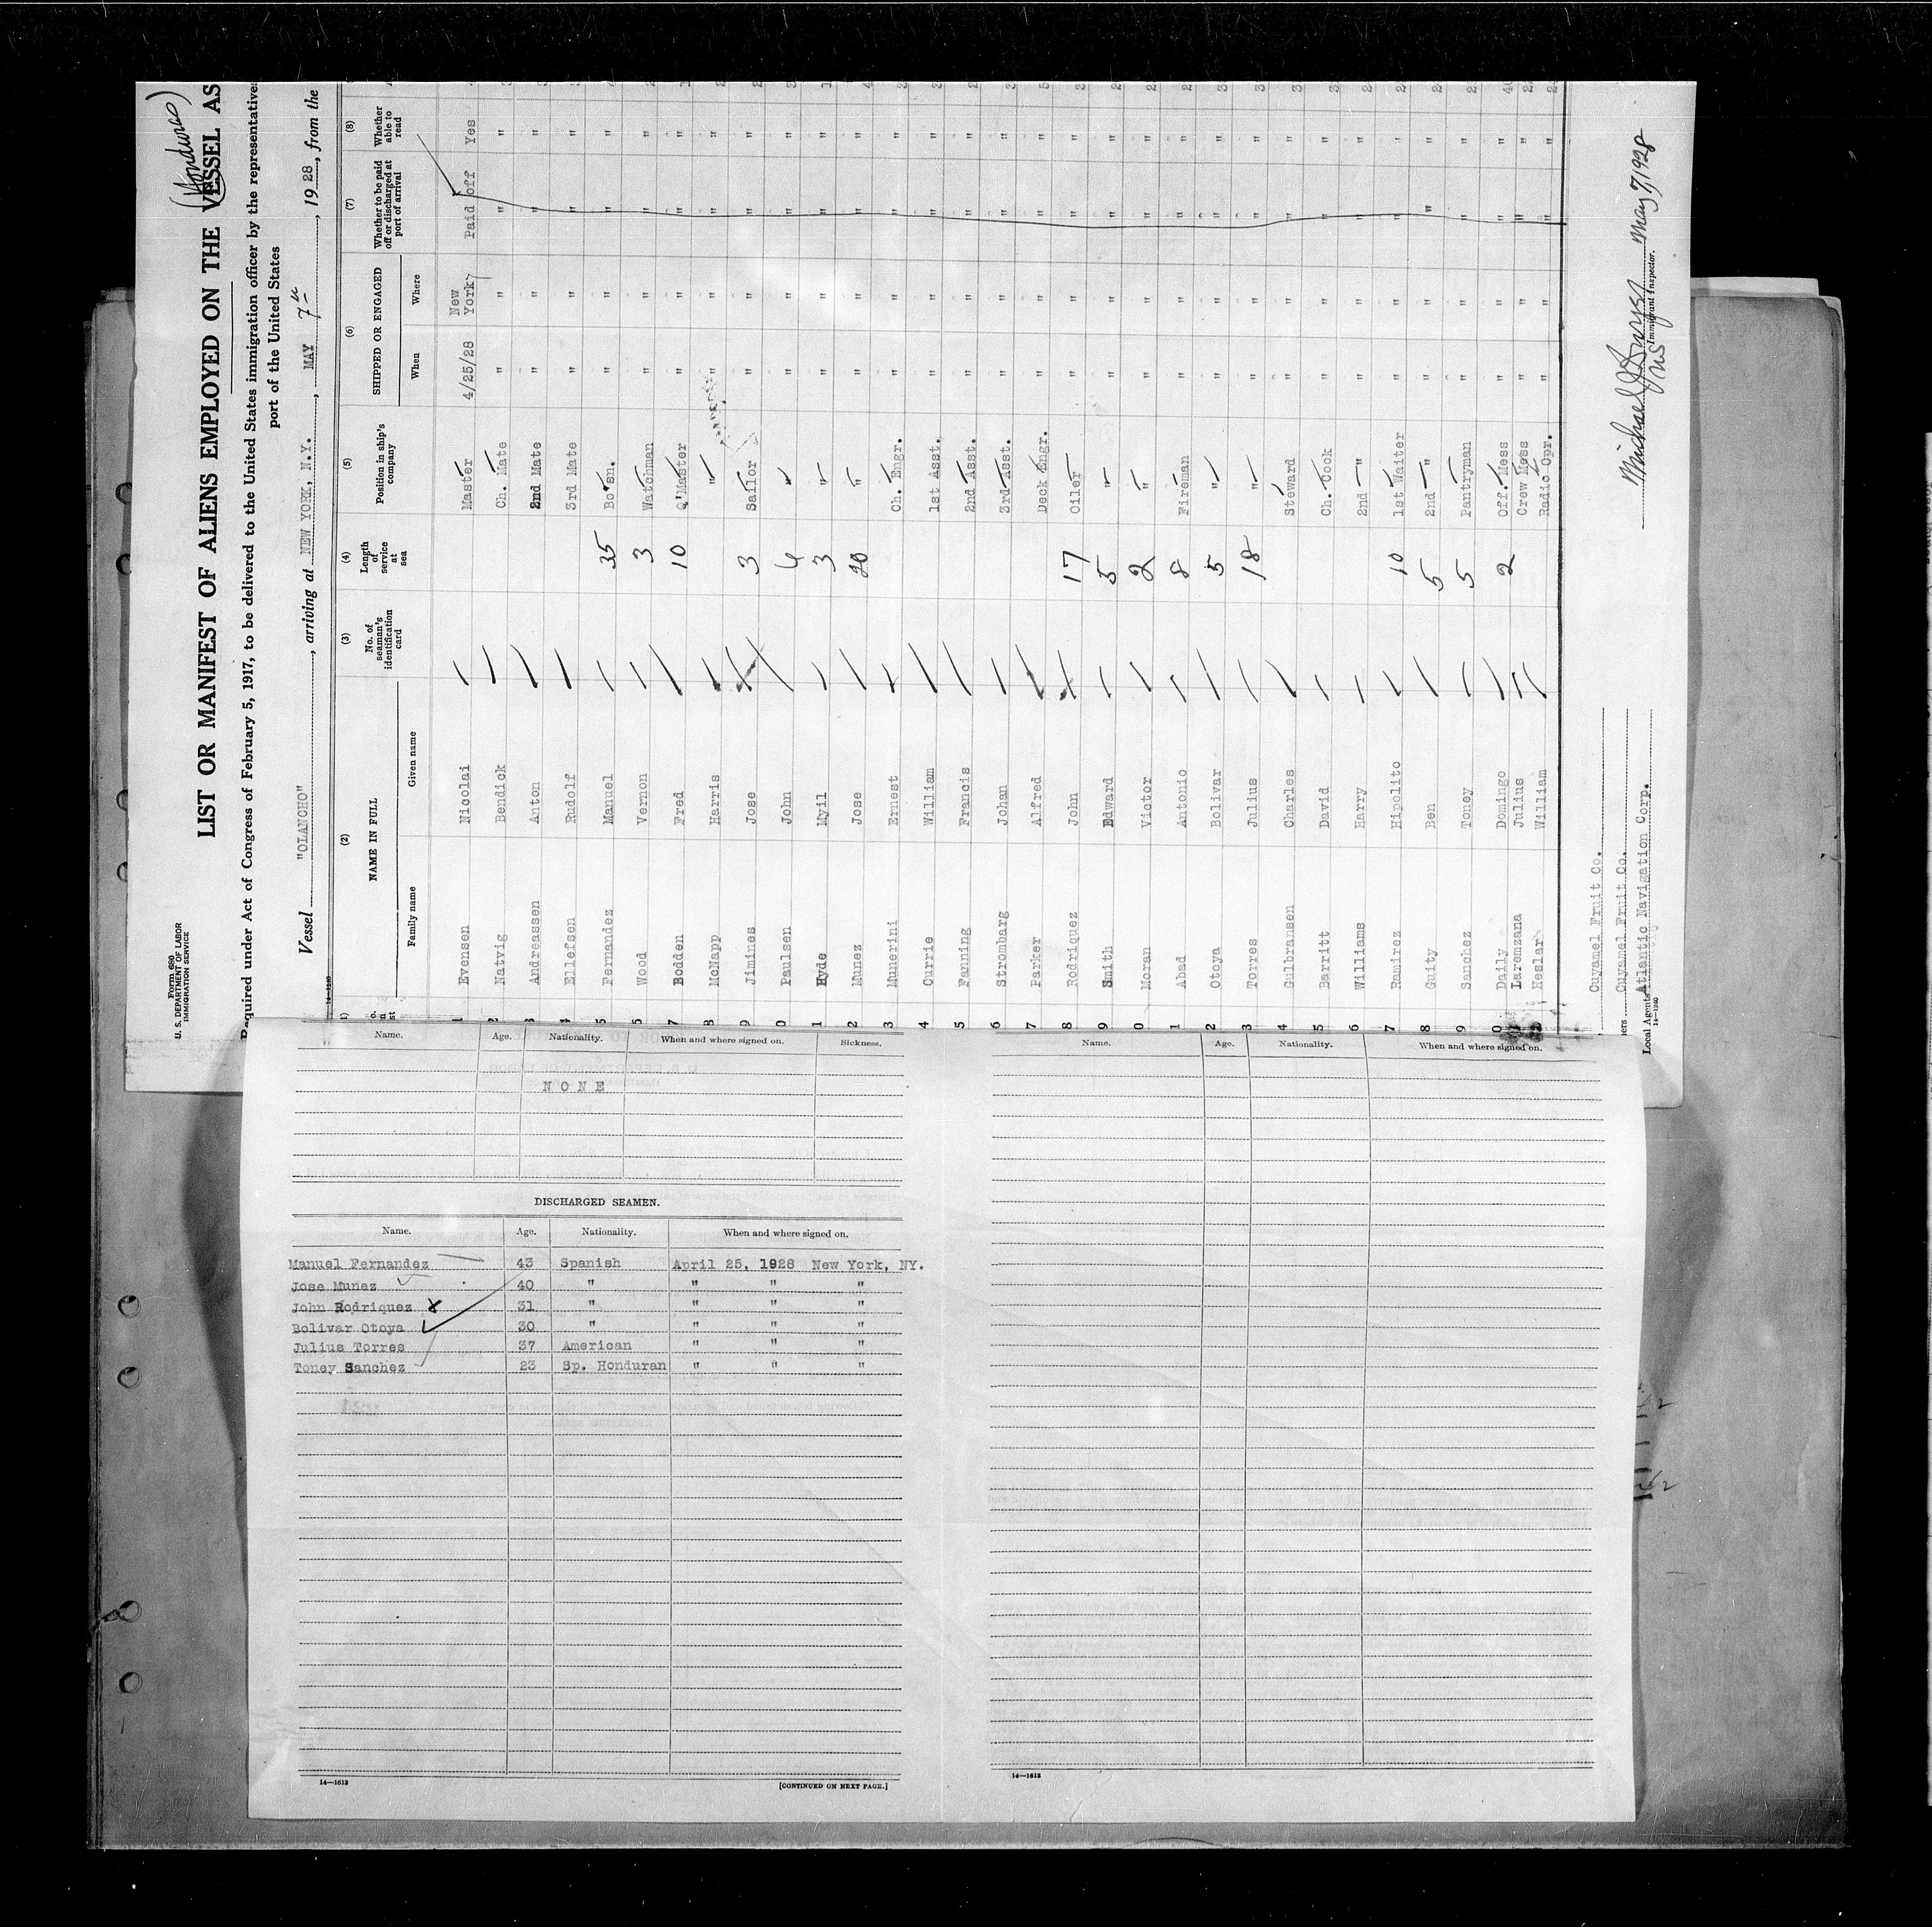 Form 680
U. S. DEPARTMENT OF LABOR
IMMIGRATION SERVICE
(Honduras)
LIST OR MANIFEST OF ALIENS EMPLOYED ON THE VESSEL AS
Required under Act of Congress of February 5, 1917, to be delivered to the United States immigration officer by the representatives
port of the United States
Vessel "OLANCHO", arriving at NEW YORK, N.Y., MAY 7th, 1928, from the
14—1240
(2) (3) (4) (5) (6) (7) (8)
NAME IN FULL No. of seaman's identification card Length of service at sea Position in ship's company SHIPPED OR ENGAGED Whether to be paid off or discharged at port of arrival Whether able to read
Family name Given name When Where
1 Evensen Nicolai Master 4/25/28 New York Paid off Yes
2 Natvig Bendick Ch. Mate " " " "
3 Andreassen Anton 2nd Mate " " " "
4 Ellefsen Rudolf 3rd Mate " " " "
5 Fernandez Manuel 35 Bo'sn. " " " "
6 Wood Vernon 3 Watchman " " " "
7 Bodden Fred 10 Q'Master " " " "
8 McNapp Harris " " " " "
9 Jimines Jose 3 Sailor " " " "
0 Paulsen John 4 " " " " "
1 Hyde Myil 3 " " " " "
2 Munez Jose 20 " " " " "
3 Munerini Ernest Ch. Engr. " " " "
4 Currie William 1st Asst. " " " "
5 Fanning Francis 2nd Asst. " " " "
6 Strombarg Johan 3rd Asst. " " " "
7 Parker Alfred Deck Engr. " " " "
8 Rodriquez John 17 Oiler " " " "
9 Smith Edward 5 " " " " "
0 Moran Victor 2 " " " " "
1 Abad Antonio 8 Fireman " " " "
2 Otoya Bolivar 5 " " " " "
3 Torres Julius 18 " " " " "
4 Gulbransen Charles Steward " " " "
5 Barritt David Ch. Cook " " " "
6 Williams Harry 2nd " " " " "
7 Ramirez Hipolito 10 1st Waiter " " " "
8 Guity Ben 5 2nd " " " " "
9 Sanchez Toney 5 Pantryman " " " "
0 Daily Domingo 2 Off. Mess " " " "
Laremzana Julius Crew Mess " " " "
Heslar William Radio Opr. " " " "
Cuyamel Fruit Co.
Cuyamel Fruit Co.
Local Agents Atlantic Navigation Corp.
14—1240
May 7, 1928
Immigrant Inspector.
Name. Age. Nationality. When and where signed on. Sickness.
NONE
DISCHARGED SEAMEN.
Name. Age. Nationality. When and where signed on.
Manuel Fernandez 43 Spanish April 25, 1928 New York, NY.
Jose Munez 40 " " " "
John Rodriquez 31 " " " "
Bolivar Otoya 30 " " " "
Julius Torres 37 American " " "
Toney Sanchez 23 Sp. Honduran " " "
14—1613
[CONTINUED ON NEXT PAGE.]
Name. Age. Nationality. When and where signed on.
14—1613